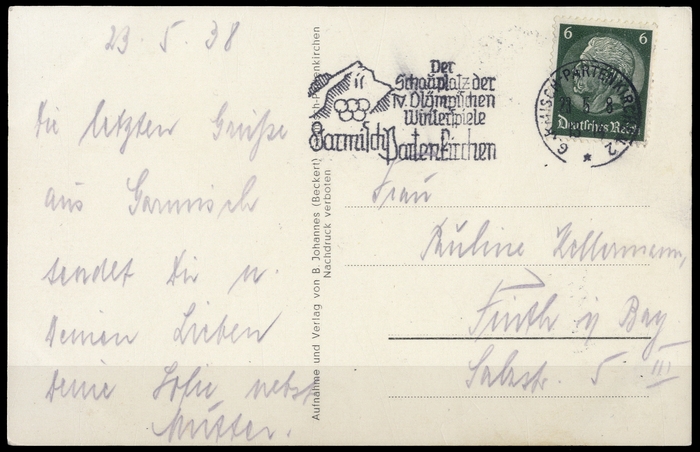 23. 5. 38
Die letzten Grüße
aus Garmisch
sendet Dir u.
Deinen Lieben
Deine Sofie nebst
Mutter.
Aufnahme und Verlag von B. Johannes (Beckert)
Nachdruck verboten
Der
Schauplatz der
IV. Olympischen
Winterspiele
Garmisch-Partenkirchen
6 6
Deutsches Reich
GARMISCH-PARTENKIRCHEN 2
Frau
Pauline Kellermann,
Fürth i/ Bay
Salzstr. 5 III